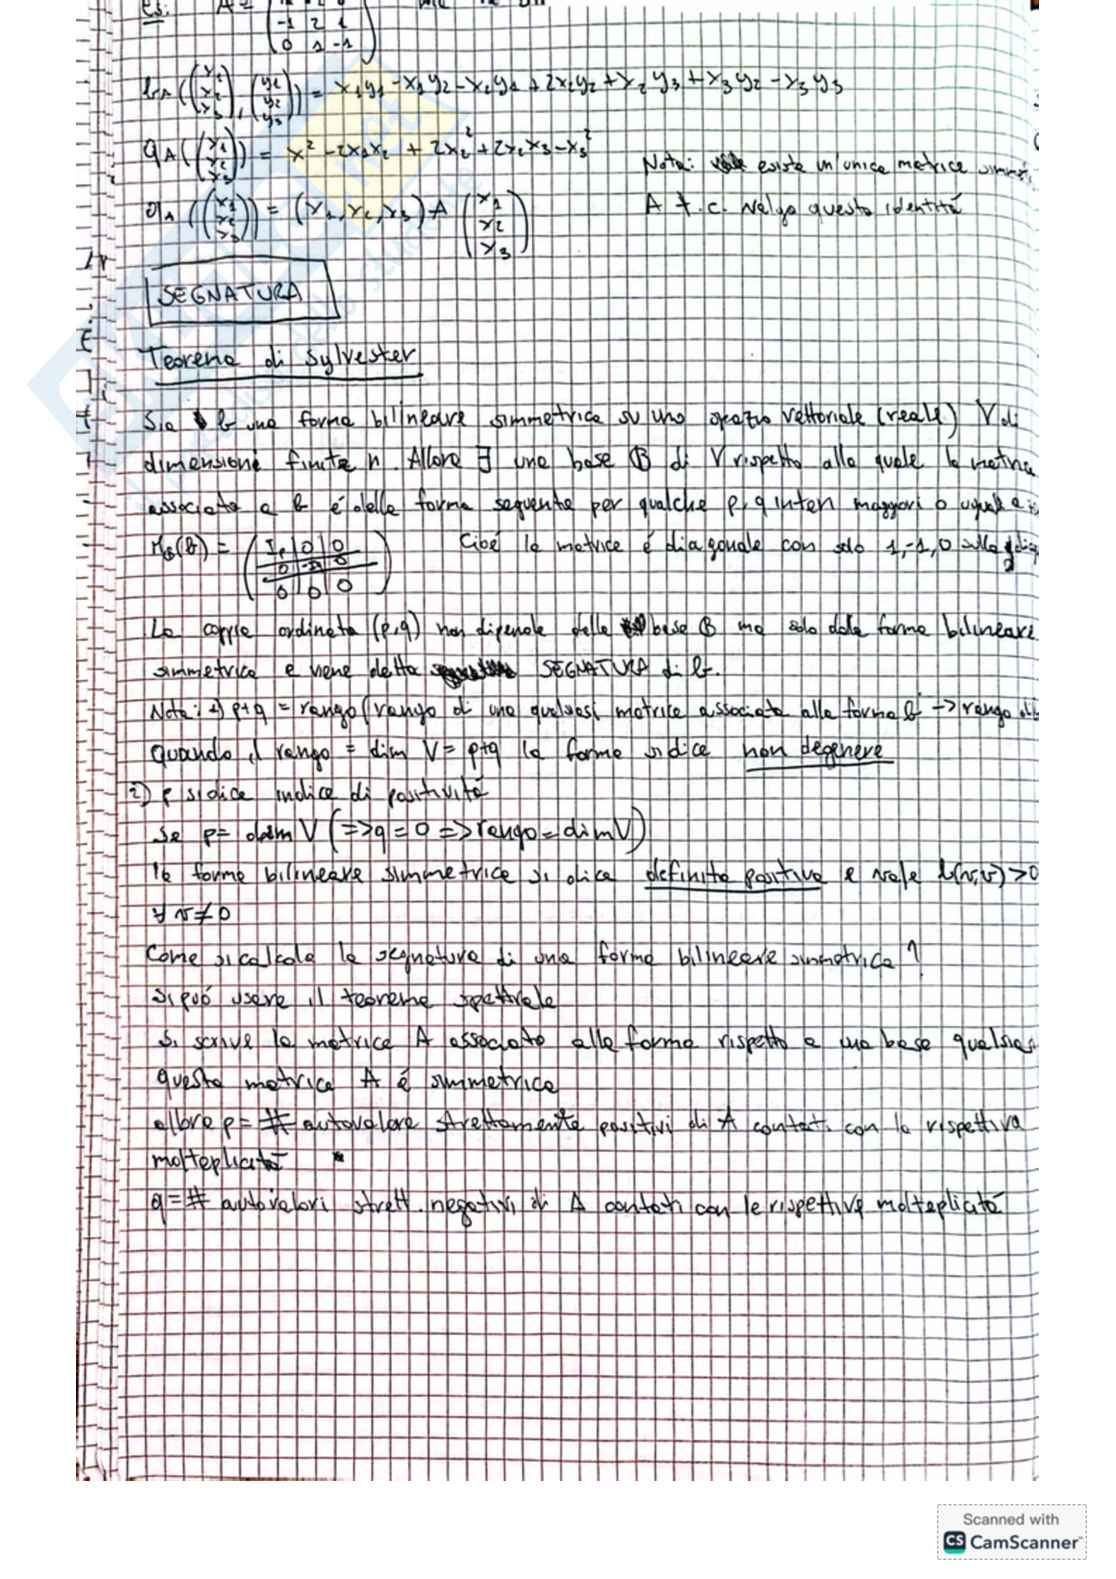 es. A =
-1 2 1
0 1 -1
b_A((x1 x2 x3), (y1 y2 y3)) = x1y1 - x1y2 - x2y1 + 2x2y2 + x2y3 + x3y2 - x3y3
q_A((x1 x2 x3)) = x² - 2x1x2 + 2x2² + 2x2x3 - x3²
Nota: existe un'unica matrice simm.
q_A((x1 x2 x3)) = (x1, x2, x3) A (x1 x2 x3)
A t.c. valga questa identità
SEGNATURA
Teorema di Sylvester
Sia b una forma bilineare simmetrica su uno spazio vettoriale (reale) V di
dimensione finita n. Allora ∃ una base B di V rispetto alla quale la matrice
associata a b é della forma seguente per qualche p, q interi maggiori o uguali a
M_B(b) = ( I_p | 0 | 0
0 | -I | 0
0 | 0 | 0 )
Cioé la matrice é diagonale con solo 1, -1, 0 sulla
La coppia ordinata (p,q) non dipende dalla base B ma solo dalla forma bilineare
simmetrica e viene detta SEGNATURA di b.
Nota: 1) p+q = rango (rango di una qualsiasi matrice associata alla forma b -> rango di
quando il rango = dim V = p+q la forma si dice non degenere
2) p si dice indice di positività
Se p = dim V (=> q = 0 => rango = dim V)
la forma bilineare simmetrica si dice definita positiva e vale b(v,v) > 0
∀ v ≠ 0
Come si calcola la segnatura di una forma bilineare simmetrica?
Si può usare il teorema spettrale
Si scrive la matrice A associata alla forma rispetto a una base qualsias
questa matrice A é simmetrica
allora p = # autovalore strettamente positivi di A contati con la rispettiva
molteplicità
q = # autovalori strett. negativi di A contati con le rispettive molteplicità
Scanned with
CS CamScanner